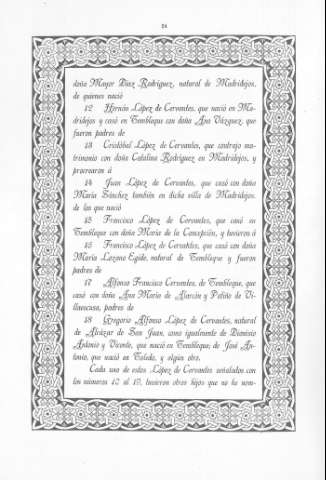 24
doña Mayor Díaz Rodríguez, natural de Madridejos,
de quienes nació
12 Hernán López de Cervantes, que nació en Ma-
dridejos y casó en Tembleque con doña Ana Vázquez, que
fueron padres de
13 Cristóbal López de Cervantes, que contrajo ma-
trimonio con doña Catalina Rodríguez en Madridejos, y
procrearon á
14 Juan López de Cervantes, que casó con doña
María Sánchez también en dicha villa de Madridejos,
de las que nació
15 Francisco López de Cervantes, que casó en
Tembleque con doña María de la Concepción, y tuvieron á
16 Francisco López de Cervantes, que casó con doña
María Lozano Egido, natural de Tembleque y fueron
padres de
17 Alfonso Francisco Cervantes, de Tembleque, que
casó con doña Ana María de Alarcón y Patiño de Vi-
llaescusa, padres de
18 Gregorio Alfonso López de Cervantes, natural
de Alcázar de San Juan, como igualmente de Dionisio
Antonio y Vicente, que nació en Tembleque; de José An-
tonio, que nació en Toledo, y algún otro.
Cada uno de estos López de Cervantes señalados con
los números 10 al 18, tuvieron otros hijos que no he nom-